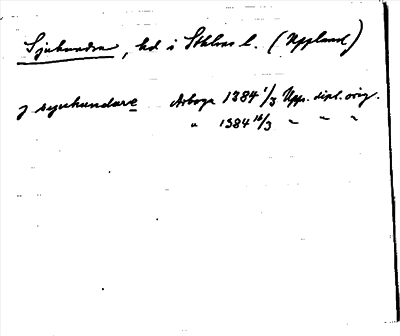 Sjuhundra, hd i Sthlms l. (Uppland)
j siyuhundare Arboga 1384 1/3 Upps. dipl. orig.
" 1384 16/3 " " "